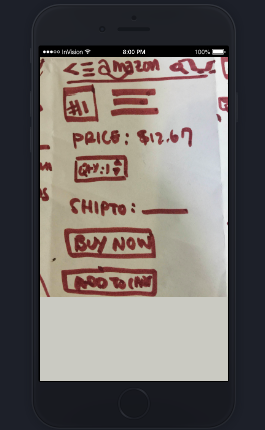 InVision 8:00 PM 100%
amazon
#1
PRICE: $12.67
QTY: 1
SHIPTO:
BUY NOW
ADD TO CART